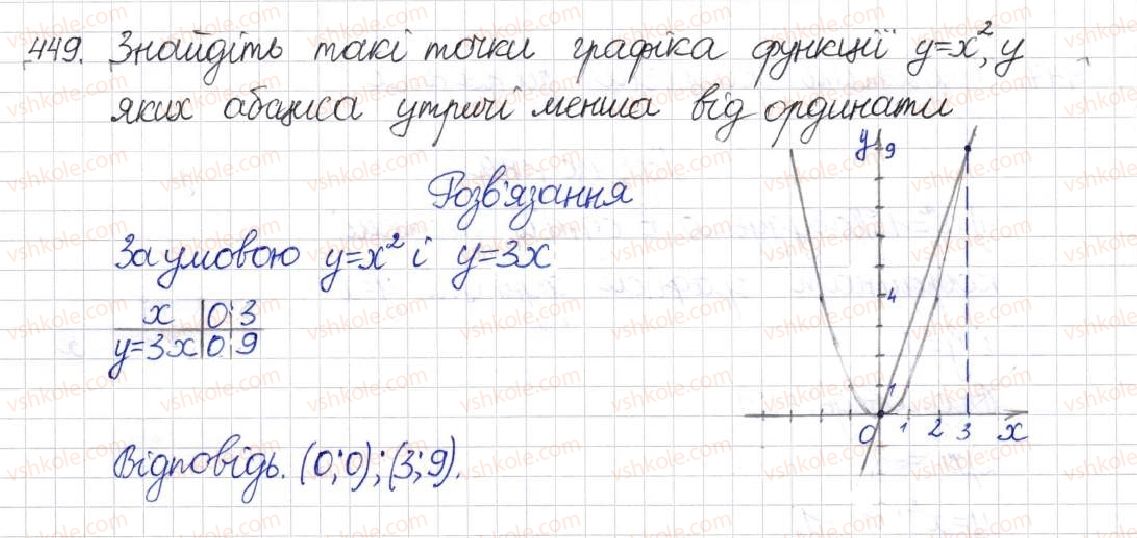 449. Знайдіть такі точки графіка функції y=x², у
яких абациса утричі менша від ординати
Розв'язання
За умовою y=x² і y=3x
x 0 3
y=3x 0 9
Відповідь. (0;0);(3;9).
y 9
4
1
0 1 2 3 x
vshkole.com